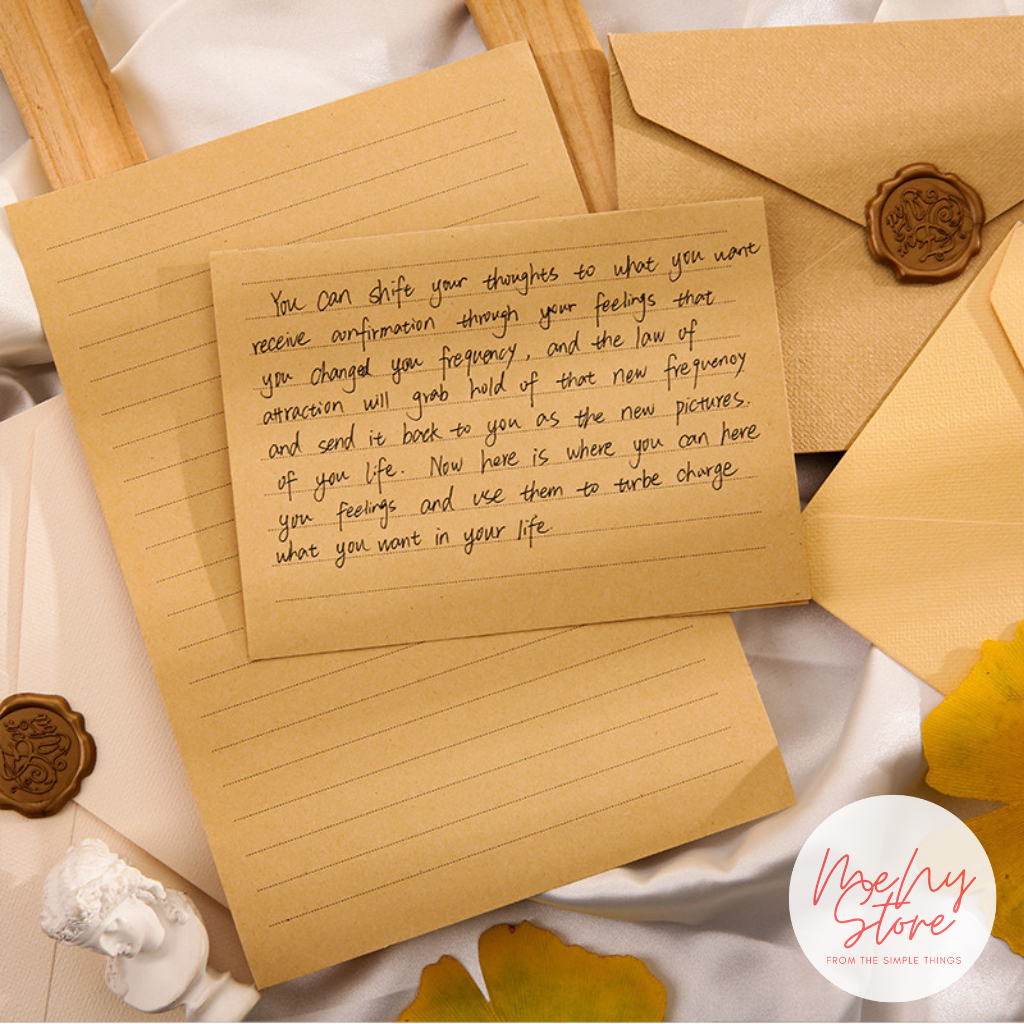 You can shift your thoughts to what you want
receive confirmation through your feelings that
you changed you frequency, and the law of
attraction will grab hold of that new frequency
and send it back to you as the new pictures.
of you life. Now here is where you can here
you feelings and use them to turbe charge
what you want in your life.
Mehy
Store
FROM THE SIMPLE THINGS